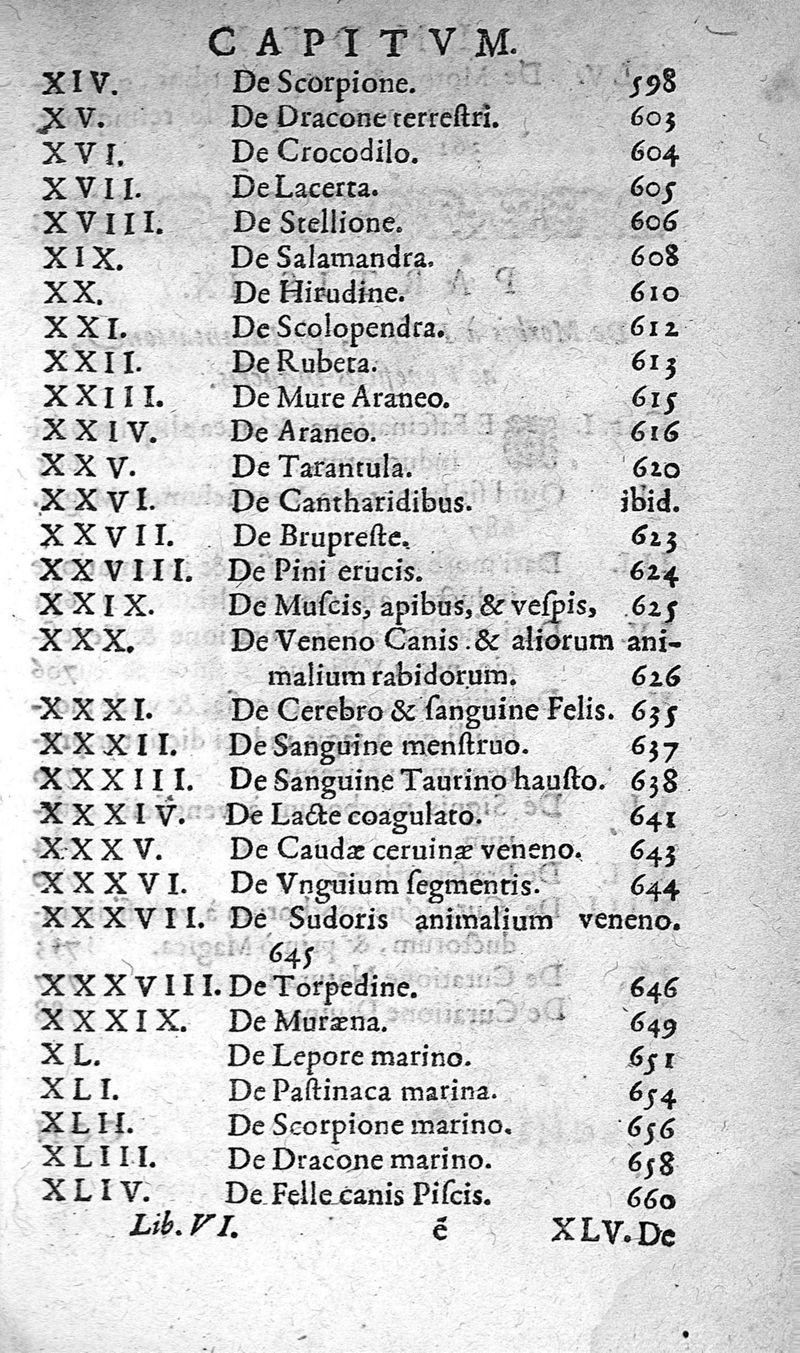 CAPITVM.
XIV. De Scorpione. 598
XV. De Dracone terreſtri. 603
XVI. De Crocodilo. 604
XVII. De Lacerta. 605
XVIII. De Stellione. 606
XIX. De Salamandra. 608
XX. De Hirudine. 610
XXI. De Scolopendra. 612
XXII. De Rubeta. 613
XXIII. De Mure Araneo. 615
XXIV. De Araneo. 616
XXV. De Tarantula. 620
XXVI. De Cantharidibus. ibid.
XXVII. De Brupreſte. 623
XXVIII. De Pini erucis. 624
XXIX. De Muſcis, apibus, & veſpis, 625
XXX. De Veneno Canis & aliorum ani-
malium rabidorum. 626
XXXI. De Cerebro & ſanguine Felis. 635
XXXII. De Sanguine menſtruo. 637
XXXIII. De Sanguine Taurino hauſto. 638
XXXIV. De Lacte coagulato. 641
XXXV. De Caudæ ceruinæ veneno. 643
XXXVI. De Vnguium ſegmentis. 644
XXXVII. De Sudoris animalium veneno.
645
XXXVIII. De Torpedine. 646
XXXIX. De Muræna. 649
XL. De Lepore marino. 651
XLI. De Paſtinaca marina. 654
XLII. De Scorpione marino. 656
XLIII. De Dracone marino. 658
XLIV. De Felle canis Piſcis. 660
Lib. VI. é XLV. De